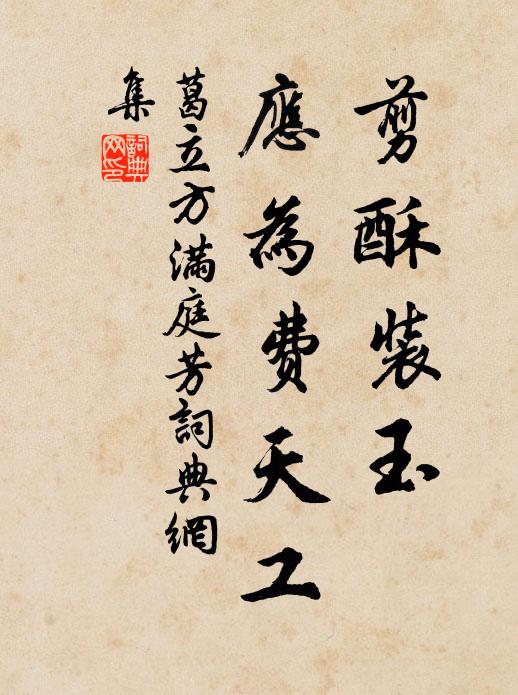 剪酥裝玉
應為費天工
葛立方滿庭芳詞典網
集
詞典網印